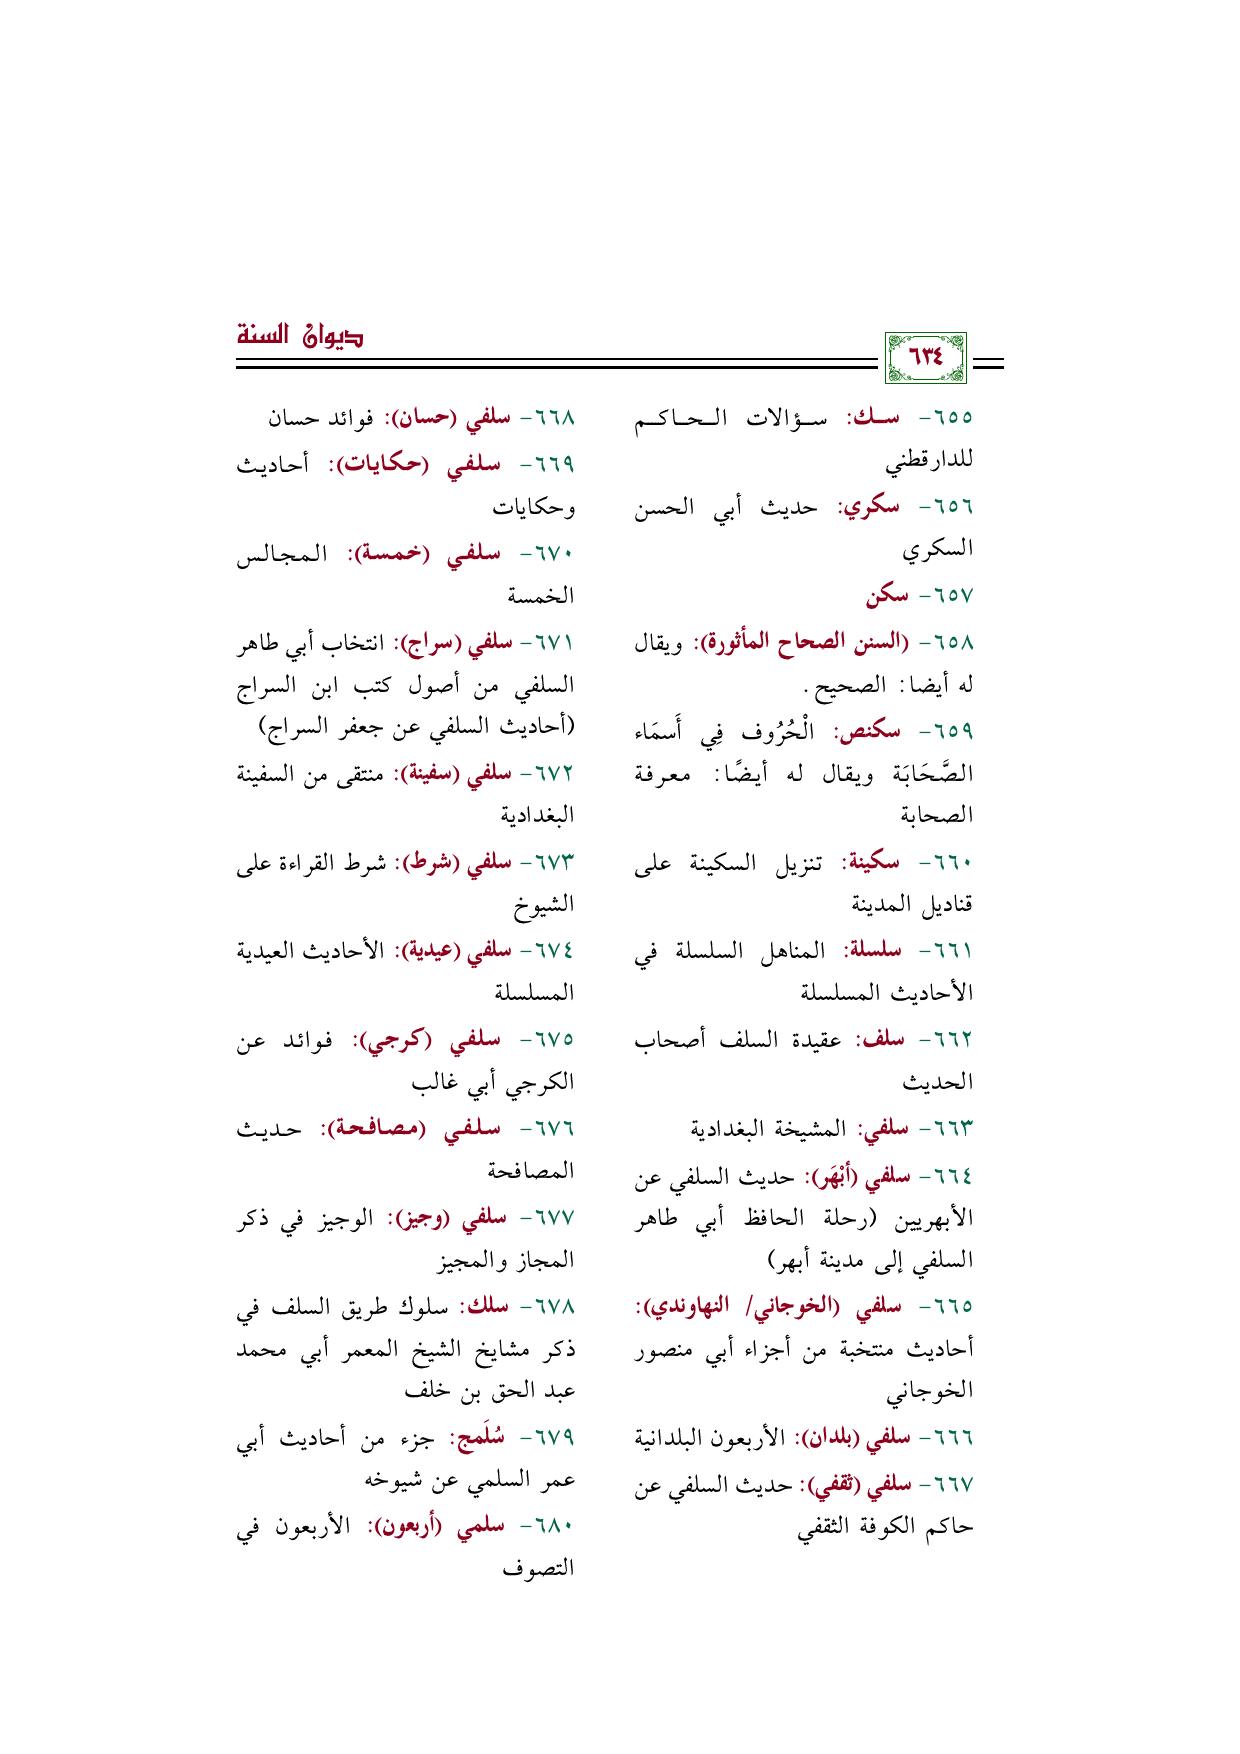 ديوان السنة
٦٣٤
٦٥٥- سك: سؤالات الحاكم
للدارقطني
٦٥٦- سكري: حديث أبي الحسن
السكري
٦٥٧- سكن
٦٥٨- (السنن الصحاح المأثورة): ويقال
له أيضا: الصحيح.
٦٥٩- سكنص: الْحُرُوف فِي أَسمَاء
الصَّحَابَة ويقال له أيضًا: معرفة
الصحابة
٦٦٠- سكينة: تنزيل السكينة على
قناديل المدينة
٦٦١- سلسلة: المناهل السلسلة في
الأحاديث المسلسلة
٦٦٢- سلف: عقيدة السلف أصحاب
الحديث
٦٦٣- سلفي: المشيخة البغدادية
٦٦٤- سلفي (أبْهَر): حديث السلفي عن
الأبهريين (رحلة الحافظ أبي طاهر
السلفي إلى مدينة أبهر)
٦٦٥- سلفي (الخوجاني/ النهاوندي):
أحاديث منتخبة من أجزاء أبي منصور
الخوجاني
٦٦٦- سلفي (بلدان): الأربعون البلدانية
٦٦٧- سلفي (ثقفي): حديث السلفي عن
حاكم الكوفة الثقفي
٦٦٨- سلفي (حسان): فوائد حسان
٦٦٩- سلفي (حكايات): أحاديث
وحكايات
٦٧٠- سلفي (خمسة): المجالس
الخمسة
٦٧١- سلفي (سراج): انتخاب أبي طاهر
السلفي من أصول كتب ابن السراج
(أحاديث السلفي عن جعفر السراج)
٦٧٢- سلفي (سفينة): منتقى من السفينة
البغدادية
٦٧٣- سلفي (شرط): شرط القراءة على
الشيوخ
٦٧٤- سلفي (عيدية): الأحاديث العيدية
المسلسلة
٦٧٥- سلفي (كرجي): فوائد عن
الكرجي أبي غالب
٦٧٦- سلفي (مصافحة): حديث
المصافحة
٦٧٧- سلفي (وجيز): الوجيز في ذكر
المجاز والمجيز
٦٧٨- سلك: سلوك طريق السلف في
ذكر مشايخ الشيخ المعمر أبي محمد
عبد الحق بن خلف
٦٧٩- سُلَمج: جزء من أحاديث أبي
عمر السلمي عن شيوخه
٦٨٠- سلمي (أربعون): الأربعون في
التصوف